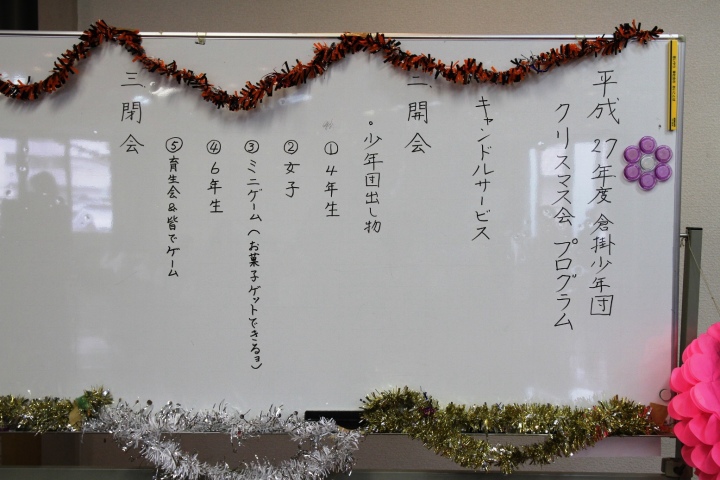 平成27年度 倉掛少年団
クリスマス会 プログラム
キャンドルサービス
二 開会
。少年団出し物
①4年生
②女子
③ミニゲーム(お菓子ゲットできるヨ)
④6年生
⑤育生会&皆でゲーム
三 閉会